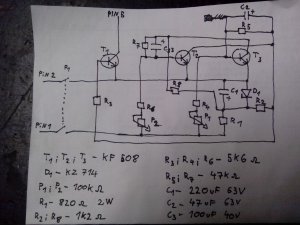 PIN 3
C2
R5
T1
R7
C3
T2
T3
PIN 2
P1
R8
R3
R6
C1
D1
P2
P1
R1
PIN 1
T1 ; T2 ; T3 - KF 508
D1 - KZ 714
P1 ; P2 - 100KΩ
R1 - 820 Ω 2W
R2 ; R8 - 1K2 Ω
R3 ; R4 ; R6 - 5K6 Ω
R5 ; R7 - 47K Ω
C1 - 220uF 63V
C2 - 47uF 63V
C3 - 100uF 40V